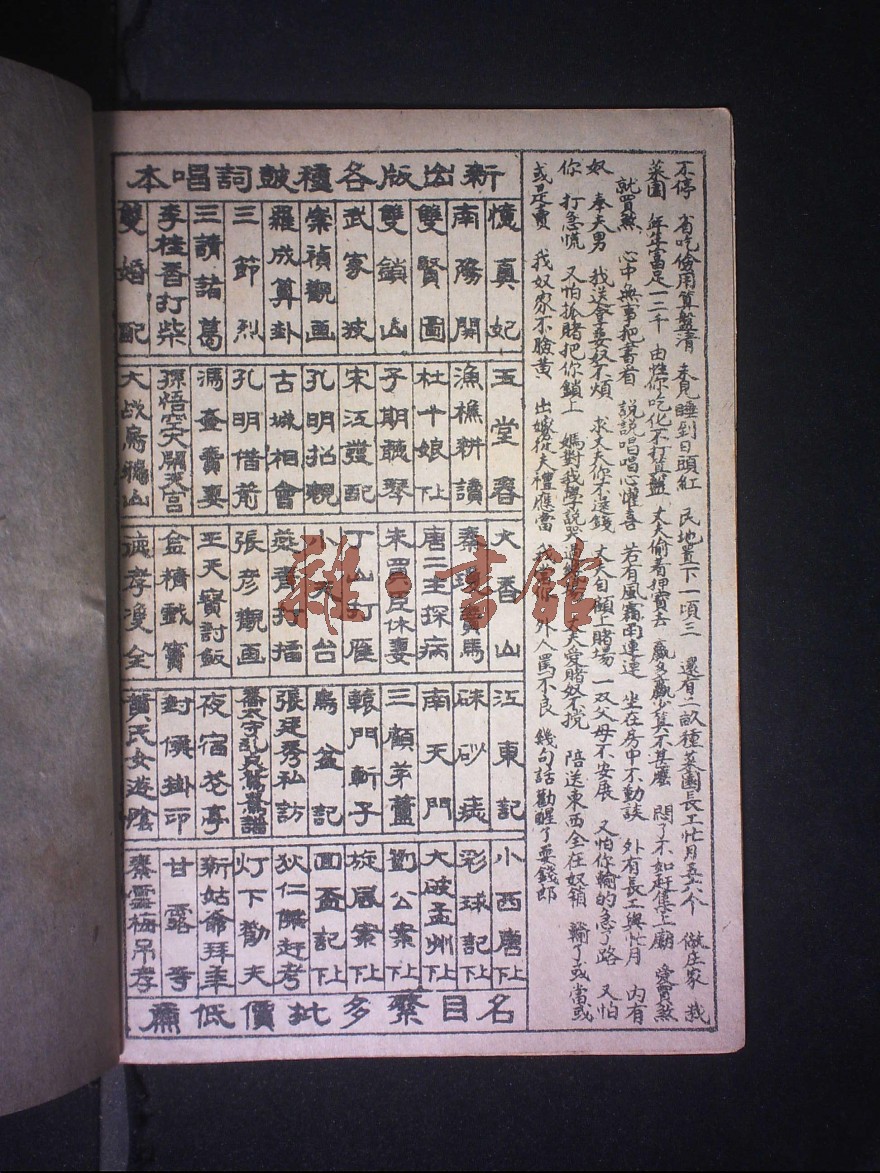 不停 省吃儉用算盤清 未見睡到日頭紅 民地置下一頃三 還有二畝種菜園 長工忙月五六个 做庄家 栽
菜園 年生富足一二千 由性你吃化不打算盤 丈夫偷着押寶去 贏多贏少莫不甚麽 悶了不如赶集上廟 愛買煞
就買煞 心中無事把書看 説説唱唱心懽喜 若有風霜雨連連 坐在房中不動談 外有長工與忙月 内有
奴 奉夫男 我送拿妻奴不煩 求丈夫你不送錢 丈夫自願上賭場 一双父母不安展 又怕你輸的急了路 又怕
你 打急慌 又怕搶賭把你鎖上 媽對我學説哭 丈夫愛賭奴不撓 陪送東西全在奴箱 輸了或當或
或是賣 我奴家不臉黄 出嫁從夫禮應當 外人罵不良 幾句話勸醒了耍錢郎
新出版各種鼓詞唱本
憶真妃
南陽關
雙賢圖
雙鎖山
武家坡
崇禎觀画
羅成算卦
三節烈
三請諸葛
李桂香打柴
雙婚配
玉堂春
漁樵耕讀
杜十娘上下
子期聽琴
宋江發配
孔明招親
古城相會
孔明借箭
馮奎賣妻
孫悟空大鬧天宮
大战烏鴉山
大香山
秦瓊賣馬
唐二主探病
朱買臣休妻
丁山打雁
小天台
燕青打擂
張彦觀画
王天寶討飯
金精戲竇
德孝双全
江東記
硃砂痣
南天門
三顧茅蘆
轅門斬子
烏盆記
張廷秀私訪
番太子乱点鴛鴦譜
夜宿花亭
對價掛印
黄氏女遊陰
小西唐上下
彩球記上下
大破孟州上下
劉公案上下
旋風案上下
回盃記上下
狄仁傑赶考
灯下勸夫
新姑爺拜年
甘露寺
秦雪梅吊孝
名目繁多批價低廉
雜·書館